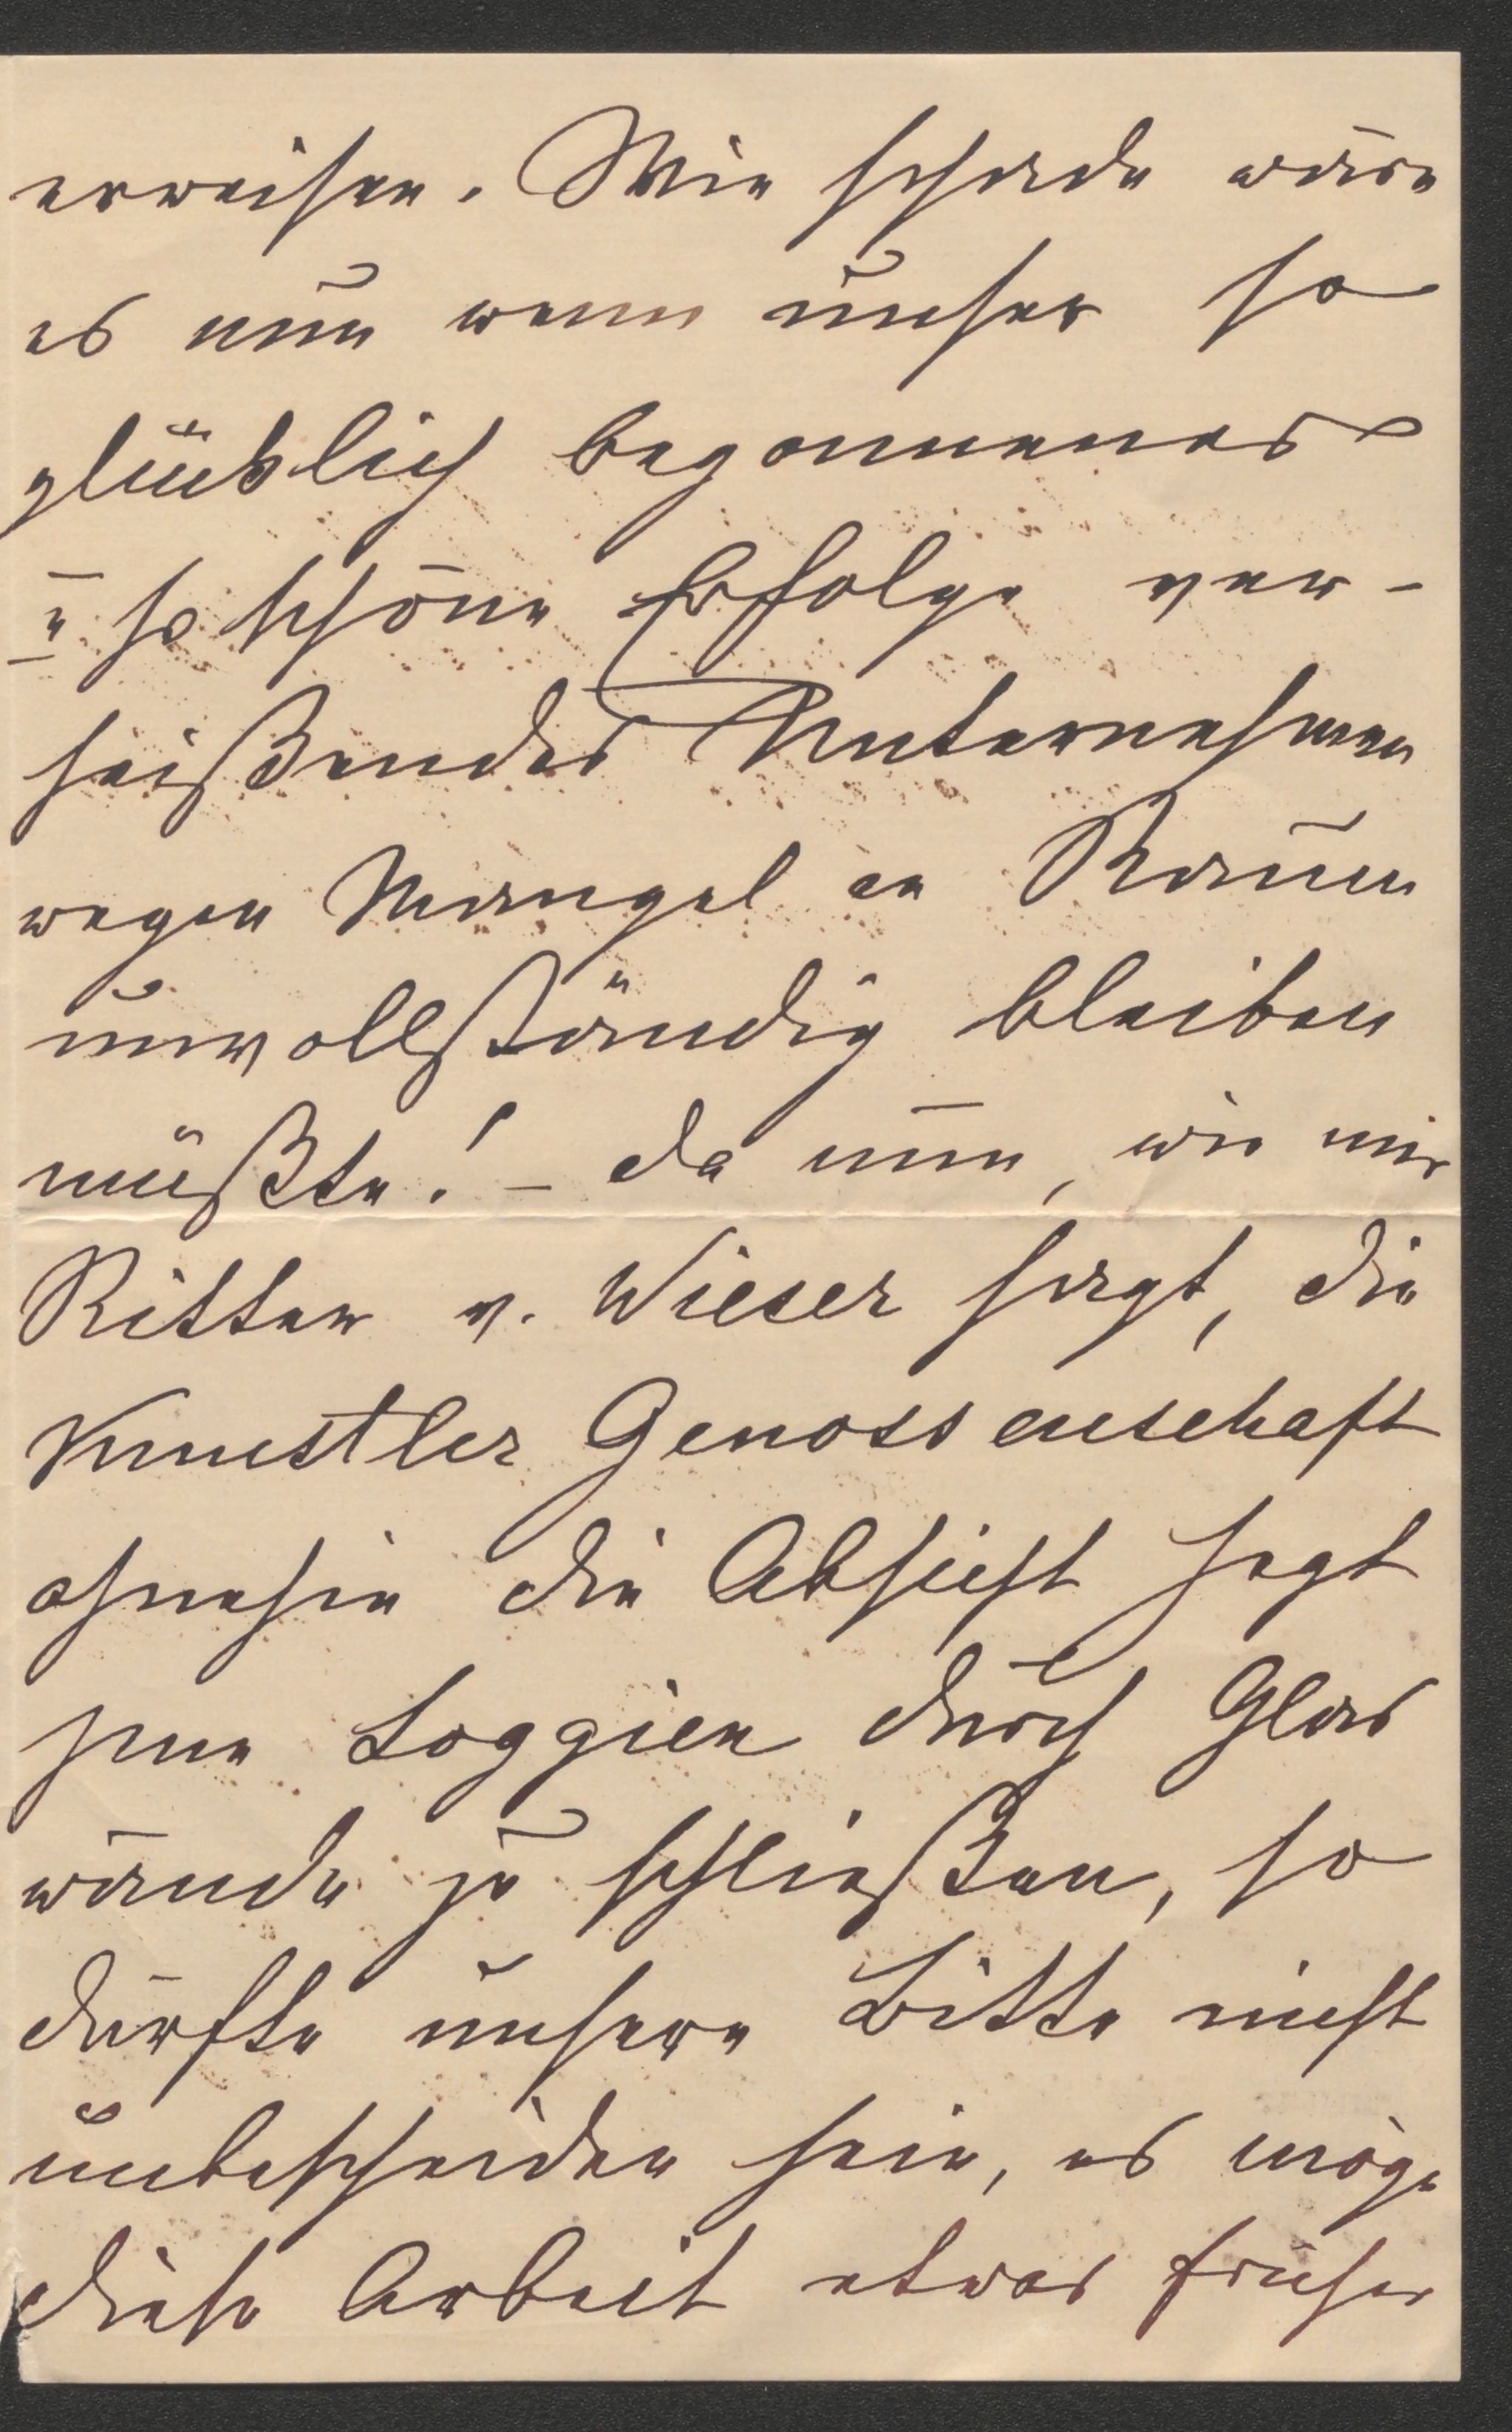 erweisen. Wie schade wäre
es nun wenn unser so
glücklich begonnenes
u so schöne Erfolge ver-
heißendes Unternehmen
wegen Mangel an Raum
unvollständig bleiben
müßte! – da nun, wie mir
Ritter v. Wieser sagt, die
Kunstler Genossenschaft
ohnehin die Absicht hegt
jene Loggien durch Glas
wände zu schließen, so
dürfte unsere Bitte nicht
unbescheiden sein, es möge
diese Arbeit etwas früher